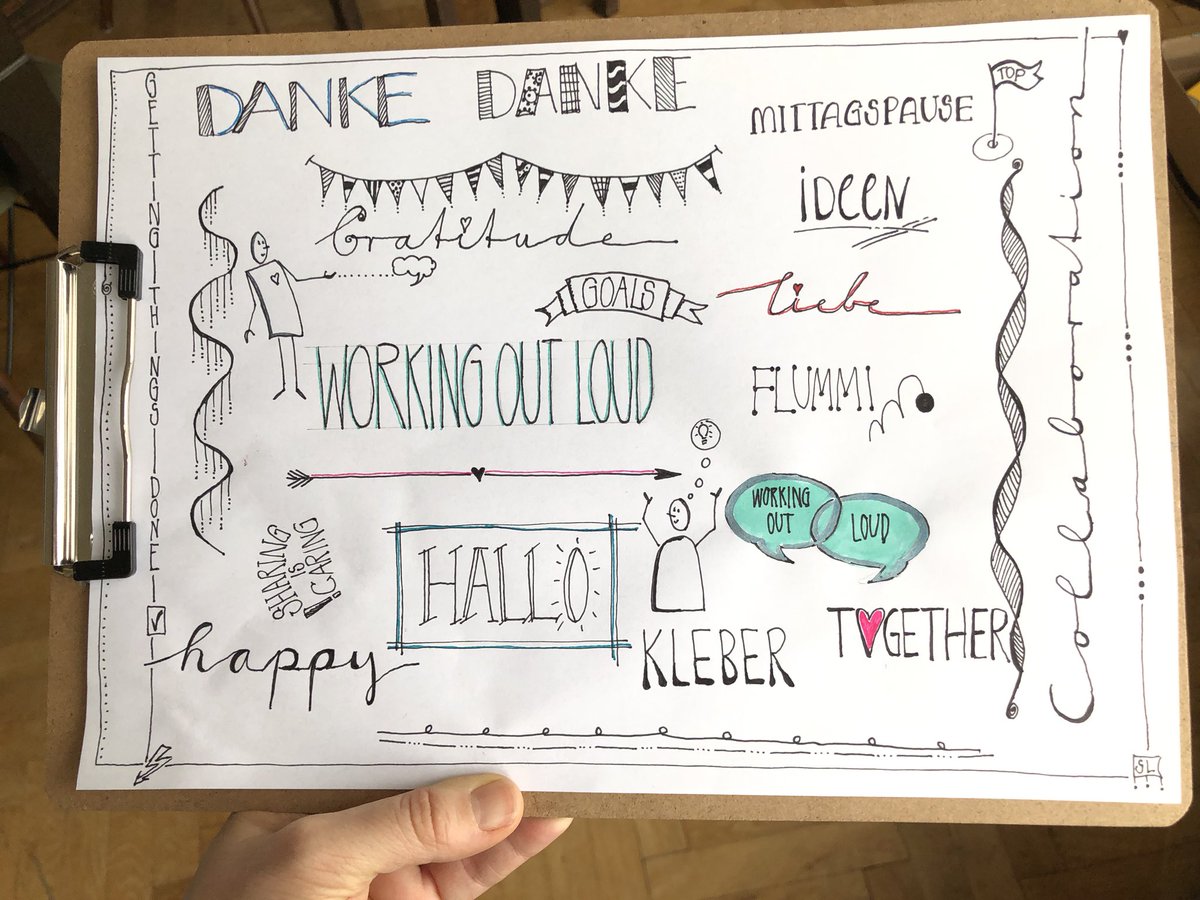 GETTING THINGS DONE
DANKE DANKE
MITTAGSPAUSE
TOP
Gratitude
iDEEN
GOALS
Liebe
WORKING OUT LOUD
FLUMMI
WORKING
OUT
LOUD
SHARING
IS
CARING
!
HALLO
happy
KLEBER
TOGETHER
Collaboration
SL